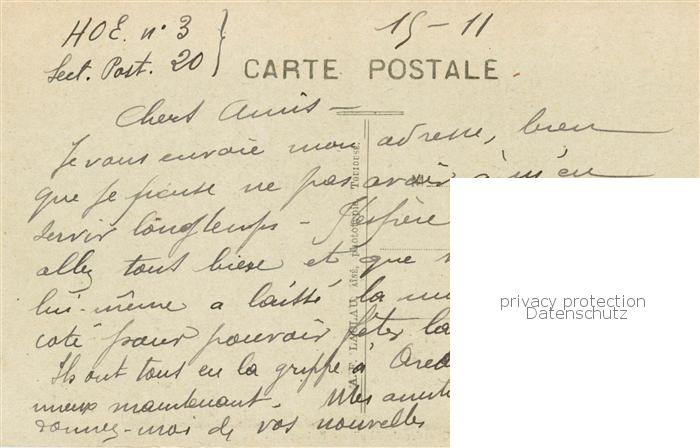 HOE. n° 3
Sect. Post. 20
15-11
CARTE POSTALE
Chers Amis -
Je vous envoie mon adresse, bien
que je pense ne pas avoir à m'en
servir longtemps - J'espère
allez tout bien et que
lui-même a laissé la
coté pour pouvoir fêter la
Ils ont tous eu la grippe à
mieux maintenant. Mes
donnez-moi de vos nouvelles
A. T. LABOUCHE, phototypie Toulouse.
privacy protection
Datenschutz